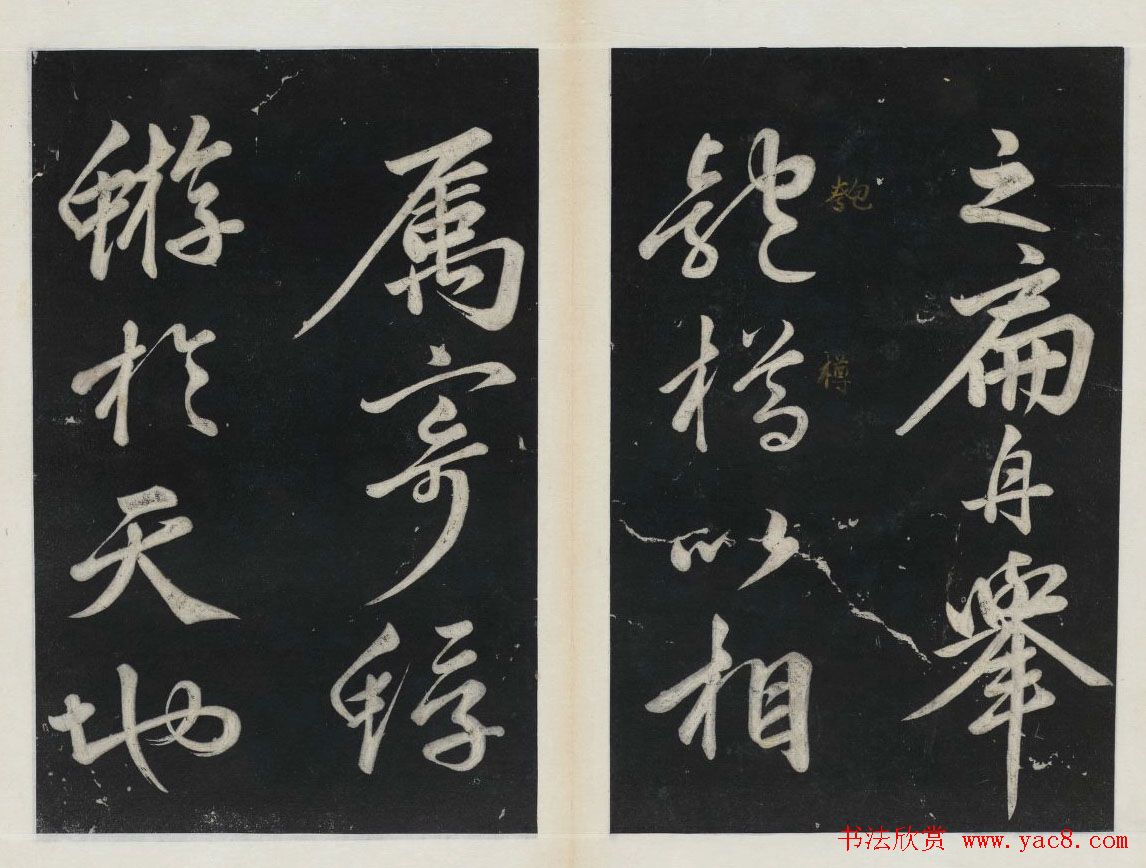 之扁舟舉
匏樽以相
匏
樽
属寄蜉
蝣於天地
书法欣赏 www.yac8.com